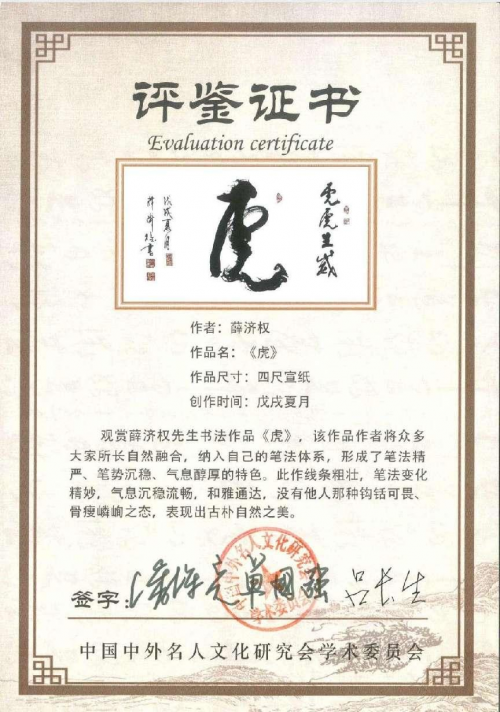 评鉴证书
Evaluation certificate
虎虎生威
虎
戊戌夏月
作者：薛济权
作品名：《虎》
作品尺寸：四尺宣纸
创作时间：戊戌夏月
观赏薛济权先生书法作品《虎》，该作品作者将众多
大家所长自然融合，纳入自己的笔法体系，形成了笔法精
严、笔势沉稳、气息醇厚的特色。此作线条粗壮，笔法变化
精妙，气息沉稳流畅，和雅通达，没有他人那种钩铦可畏、
骨瘦嶙峋之态，表现出古朴自然之美。
中国中外名人文化研究会
学术委员会
签字：
单国强 吕长生
中国中外名人文化研究会学术委员会